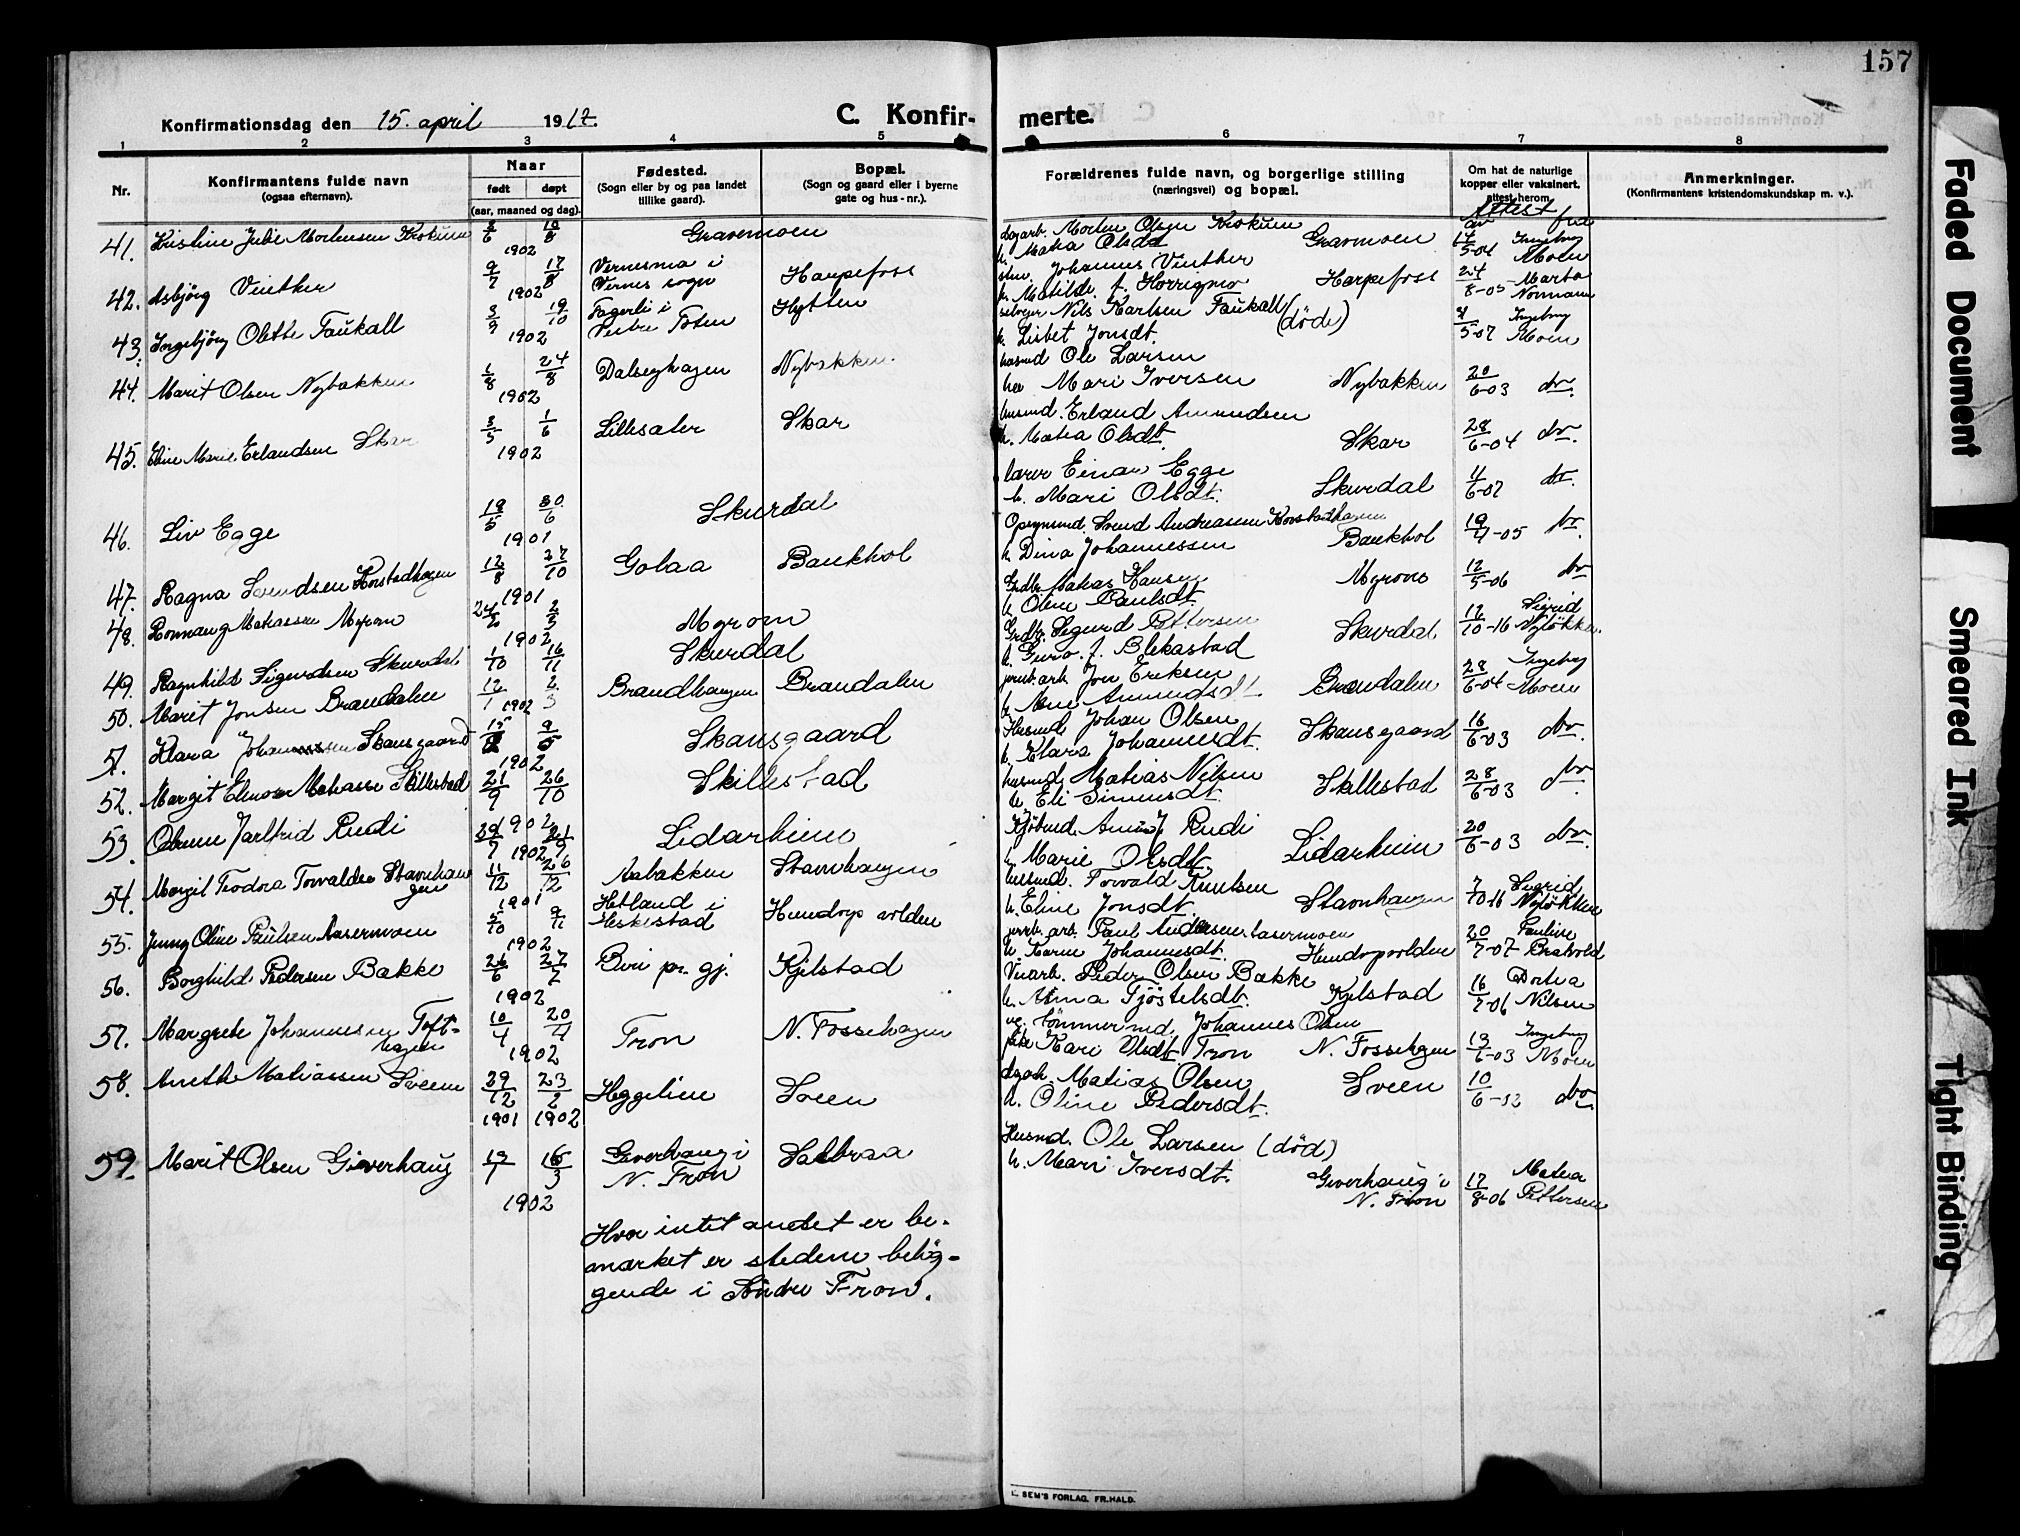 157
Konfirmationsdag den 15. april 1917.
C. Konfir-
merte.
1 2 3 4 5 6 7 8
Nr.
Konfirmantens fulde navn
(ogsaa efternavn).
Naar
født døpt
(aar, maaned og dag).
Fødested.
(Sogn eller by og paa landet
tillike gaard).
Bopæl.
(Sogn og gaard eller i byerne
gate og hus-nr.).
Forældrenes fulde navn, og borgerlige stilling
(næringsvei) og bopæl.
Om hat de naturlige
kopper eller vaksinert,
attest herom.
Anmerkninger.
(Konfirmantens kristendomskundskap m. v.).
Attest fra
41. Kristine Julie Mortensen Krokum 1902 Gravemoen
dagarb. Morten Olsen Krokum
h. Matia Olsdt Gravmoen 5-04 Ingebrg Moen
42. Asbjörg Vinther 9/7 17/8 1902 Vernesmo i
Vernes sogn Harpefoss
Johannes Vinther
h. Matilde f. Horrigmo Harpefoss 24/8-05 Marta Normann
43. Ingebjörg Olette Faukall 3/9 19/10 1902 Fagerli i
Vestre Toten Hytten
selveier Nils Karlsen Faukall (död)
h. Lisbet Jonsdt. 5-07 Ingebrg Moen
44. Marit Olsen Nybakken 1/8 24/8 1902 Dalseghagen Nybakken.
husmd Ole Larsen
Mari Iversen Nybakken 20/6-03 do.
45. Eline Marie Erlandsen Skar 3/5 1/6 1902 Lillesæter Skar
husmd. Erland Amundsen
h. Matea Olsdt. Skar 28/6-04 do.
46. Liv Egge 19/5 30/6 1901 Skurdal
lærer Einar Egge
h. Mari Olsdt. Skurdal 4/6-07 do.
47. Ragna Svendsen Korstadhagen 12/8 27/10 1901 Golaa Baukhol
Opsynsmd. Svend Andreassen Korstadhagen
h. Dina Johannessen Baukhol 19/7-05 do.
48. Ronnaug Matiassen Myrom 24/2 2/3 1902 Myrom
Grdbr. Matias Hansen
h. Oline Paulsdt. Myrom 12/5-06 do
49. Ragnhild Sigurdsen Skurdal 1/10 16/11 Skurdal
Grdbr. Sigurd Pettersen
h. Guro. f. Blekastad Skurdal 12/10-16 Sigrid Nyløkken.
50. Marit Jonsen Brandalen 12/1 2/3 1902 Brandhaugen Brandalen
jernb.arb. Jon Eriksen
h. Ane Amundsdt Brandalen 28/6-04 Ingebrg Moen
51. Klara Johannessen Skansgaard 1902 Skansgaard
Husmd Johan Olsen
h. Klara Johannesdt. Skansgaard 16/6-03 do.
52. Margit Elenore Matiasse Skillestad 21/9 26/10 1902 Skillestad
husmd. Matias Nilsen
h. Eli Simensdt. Skillestad 28/6-03 do.
53. Olunn Jarlfrid Rudi 1902 Lidarheim
Kjöbmd. Amund Rudi
h. Marie Olsdt. Lidarheim 20/6-03 do.
54. Margit Teodora Torvaldse Stavnhau
gen 11/12 26/12 1901 Aabakken Stavnhaugen
husmd. Torvald Knutsen
h. Eline Jonsdt. Stavnhaugen 7/10-16 Sigrid Nyløkken
55. Jenny Oline Paulsen Aasermoen 5/10 9/11 1902 Hetland i
Heskestad Hundorpvolden
jernb. arb. Paul Andersen Aasermoen
h. Karen Johannesdt. Hundorpvolden 20/7-07 Pauline Bratvold
56. Borghild Pedersen Bakke 26/6 27/7 1902 Biri pr. gj. Kjilstad
Peder Olsen Bakke
h. Anna Tjöstelsdt. Kjilstad 16/7-06 Dortea Nilsen
57. Margrete Johannesen Toft-
hagen 10/4 20/4 1902 Fron N. Fossehagen
Tömmermd. Johannes Olsen
Kari Olsdt. Fron N. Fossehagen 13/6-03 Ingebrg Moen
58. Anette Matiassen Sveen 29/12 23/2 1901 1902 Heggelien Sveen
dagarb. Matias Olsen
h. Oline Pedersdt. Sveen 10/6-12 do
59. Marit Olsen Giverhaug 19/1 16/3 1902 Giverhaug i
N. Fron Salbraa
Husmd. Ole Larsen (död)
h. Mari Iversdt. Giverhaug i
N. Fron 17/8-06 Matea Pettersen
Hvor intet andet er be-
mærket er stedene belig-
gende i Söndre Fron.
E. SEM'S FORLAG, FR.HALD.
Faded Document
Smeared Ink
Tight Binding